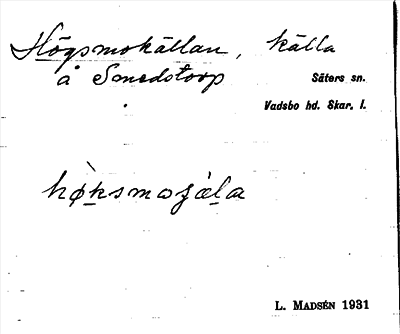 Högsmokällan, källa
å Smedstorp
Säters sn.
Vadsbo hd. Skar. l.
hø̀ksmoʒæla
L. MADSÉN 1931